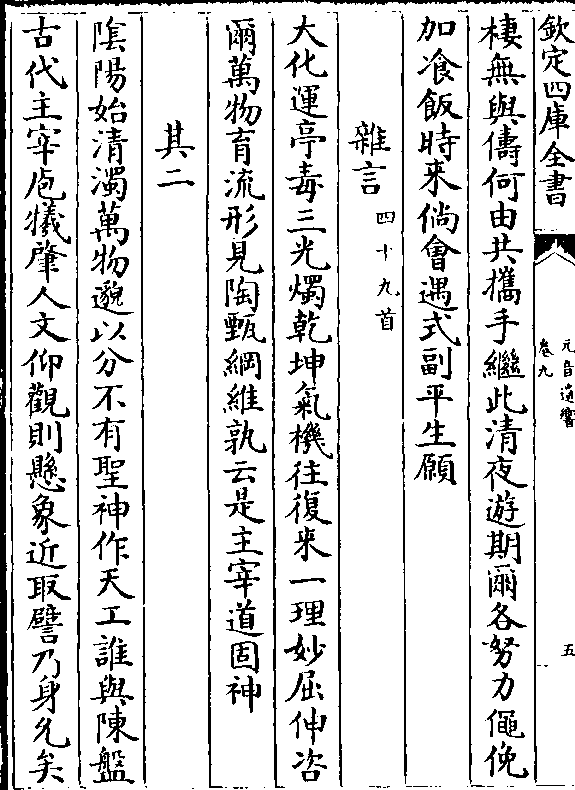 欽定四庫全書
元音遺響
卷九
五
棲無與儔何由共攜手繼此清夜遊期爾各努力僶俛
加飡飯時來倘會遇式副平生願
雜言四十九首
大化運亭毒三光燭乾坤氣機往復来一理妙屈伸咨
爾萬物育流形見陶甄綱維孰云是主宰道固神
其二
隂陽始清濁萬物邈以分不有聖神作天工誰與陳盤
古代主宰庖犧肇人文仰觀則懸象近取譬乃身允矣